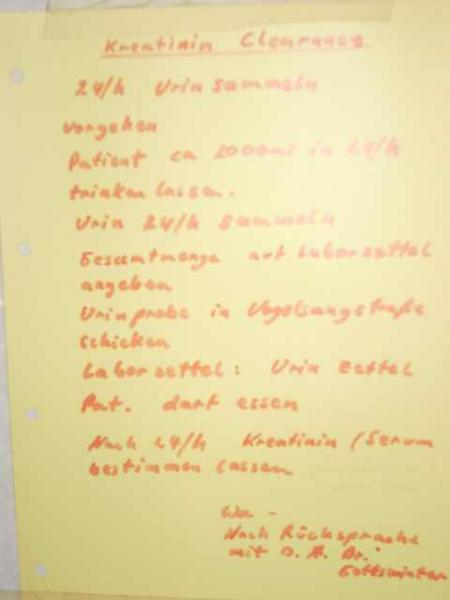 Kreatinin Clearance
24/h Urin sammeln
vorgehen
Patient ca 2000ml in 24/h
trinken lassen.
Urin 24/h sammeln
Gesamtmenge auf Laborzettel
angeben
Urinprobe in Vogelsangstraße
schicken
Laborzettel: Urin Zettel
Pat. darf essen
Nach 24/h Kreatinin / Serum
bestimmen lassen
Nach Rücksprache
mit O. A. Dr.